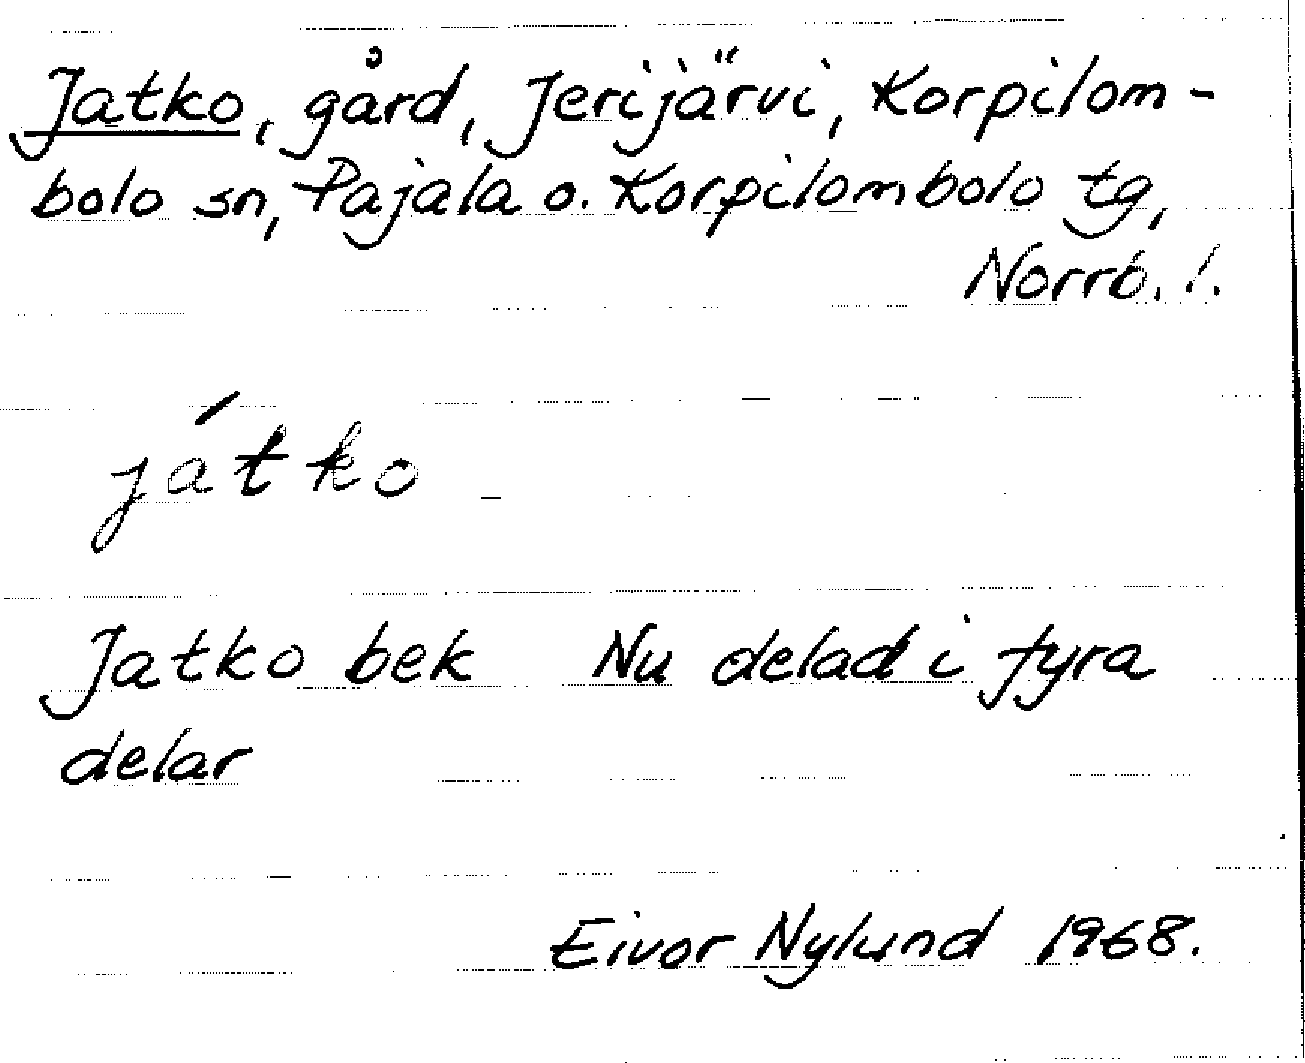 Jatko, gård, Jerijärvi, Korpilom-
bolo sn, Pajala o. Korpilombolo tg,
Norrb. l.
játko
Jatko bek Nu delad i fyra
delar
Eivor Nylund 1968.